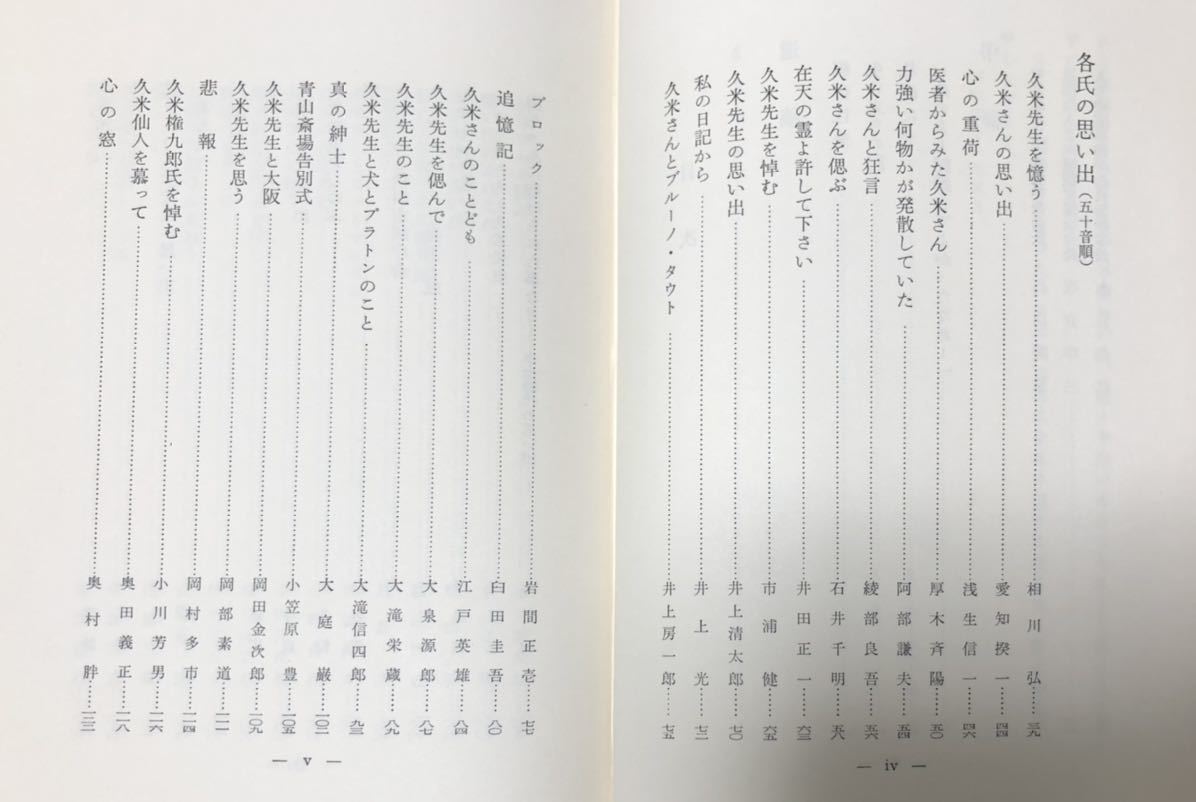 各氏の思い出（五十音順）
久米先生を憶う……相川弘……三九
久米さんの思い出……愛知揆一……四四
心の重荷……浅生信一……四六
医者からみた久米さん……厚木斉陽……五〇
力強い何物かが発散していた……阿部謙夫……五四
久米さんと狂言……綾部良吾……五六
久米さんを偲ぶ……石井千明……五八
在天の霊よ許して下さい……井田正一……六三
久米先生を悼む……市浦健……六五
久米先生の思い出……井上清太郎……七〇
私の日記から……井上光……七二
久米さんとブルーノ・タウト……井上房一郎……七五
— iv —
ブロック……岩間正壱……七七
追憶記……臼田圭吾……八〇
久米さんのことども……江戸英雄……八四
久米先生を偲んで……大泉源郎……八七
久米先生のこと……大滝栄蔵……八九
久米先生と犬とプラトンのこと……大滝信四郎……九三
真の紳士……大庭巌……一〇三
青山斎場告別式……小笠原豊……一〇五
久米先生と大阪……岡田金次郎……一〇九
久米先生を思う……岡部素道……一一一
悲報……岡村多市……一一四
久米権九郎氏を悼む……小川芳男……一一六
久米仙人を慕って……奥田義正……一一八
心の窓……奥村胖……一二二
— v —